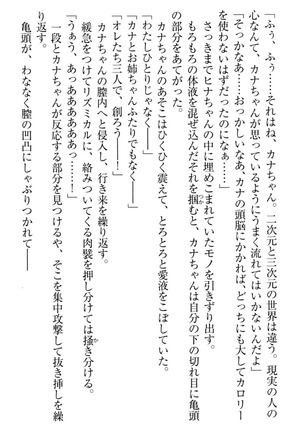 「ふぅ、ふぅ……それはね、カナちゃん。二次元と三次元の世界は違う。現実の人の
心なんて、カナちゃんが思っているようにうまく流れてはいかないんだよ」
「そっかなぁ……おっかしいなあ、カナの頭脳にかかれば、どっちにも大してカロリー
を使わないはずだったのになぁ──」
さっきまでヒナちゃんの中に埋まっていたモノを引きずり出す。
もろもろの体液を混ぜ込んだそれを掴むと、カナちゃんは自分の下の切れ目に亀頭
の部分をあてがった。
カナちゃんのあそこはひくひく震えて、とろとろと愛液をこぼしていた。
「わたしひとりじゃなく──」
「カナとお姉ちゃんふたりでもなく──」
「オレたち三人で、創ろう──！」
カナちゃんの膣内へと侵入し、行き来を繰り返す。
緩急をつけてリズミカルに、絡みついてくる肉襞を押し分けては掻き分ける。
「うぁっ、あっああああああっ──！」
一段とカナちゃんが反応する部分を見つけるや、そこを集中攻撃して抜き挿しを繰
り返す。
亀頭が、わななく膣の凹凸にしゃぶりつかれて──